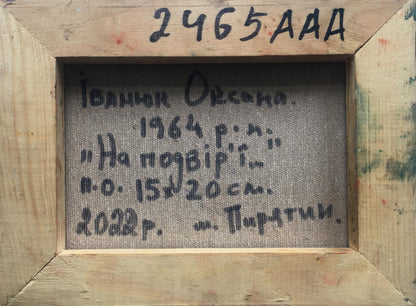 2465ААА
Іванюк Оксана.
1964 р.н.
"На подвір'ї..."
п.о. 15х20см.
2022р. м. Пирятин.